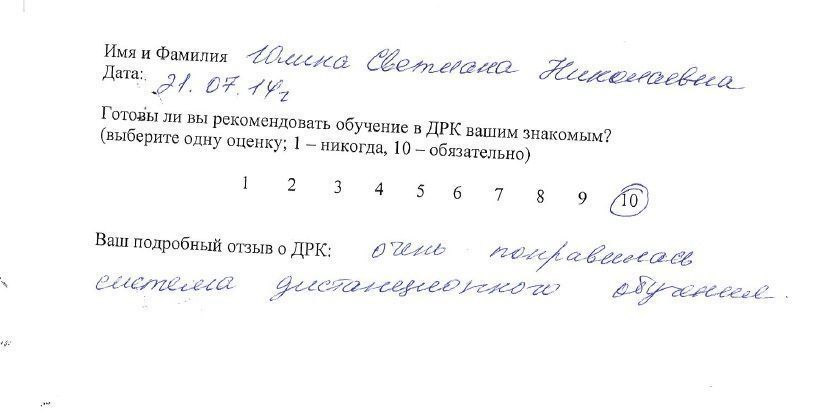 Имя и Фамилия Юлина Светлана Николаевна
Дата: 21.07.14г
Готовы ли вы рекомендовать обучение в ДРК вашим знакомым?
(выберите одну оценку; 1 – никогда, 10 – обязательно)
1 2 3 4 5 6 7 8 9 10
Ваш подробный отзыв о ДРК: очень понравилась
система дистанционного обучения.